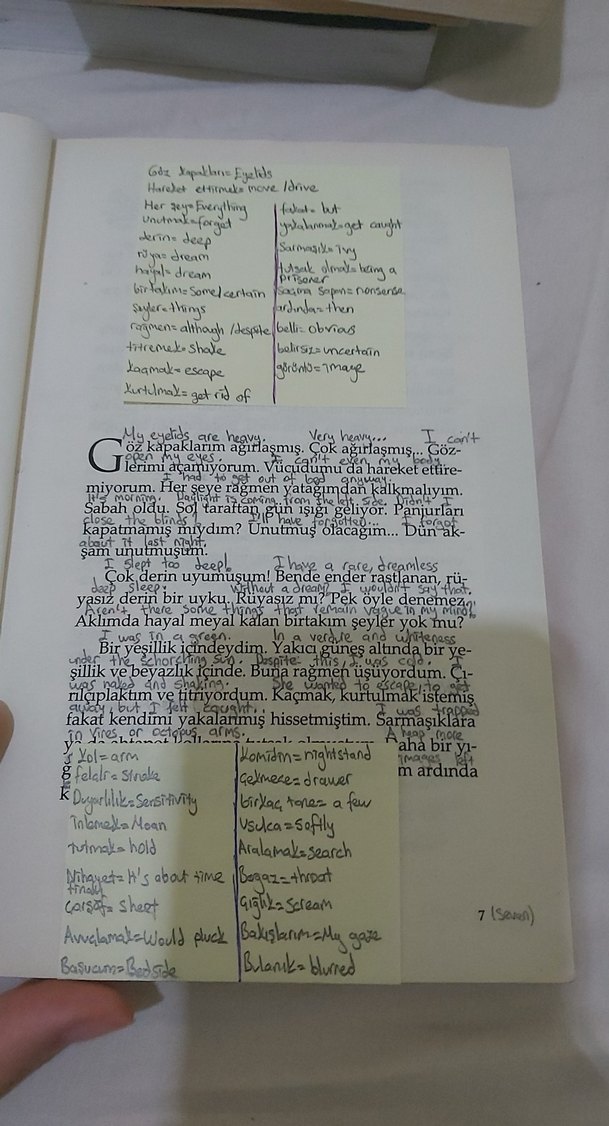 Göz kapakları= Eyelids
Hareket ettirmek= move /drive
Her şey=Everything
unutmak=forget
derin= deep
rüya= dream
hayal= dream
birtakım= some/certain
şeyler=things
rağmen= although /despite
titremek= shake
kaçmak= escape
kurtulmak= get rid of
fakat= but
yakalanmak=get caught
Sarmaşık= ivy
tutsak olmak= being a
prisoner
saçma sapan= nonsense
ardında= then
belli= obvious
belirsiz= uncertain
görüntü= image
My eyelids are heavy. Very heavy... I can't
Göz kapaklarım ağırlaşmış. Çok ağırlaşmış... Göz-
open my eyes. I can't even my body
lerimi açamıyorum. Vücudumu da hareket ettire-
I had to get out of bed anyway.
miyorum. Her şeye rağmen yatağımdan kalkmalıyım.
It's morning. Daylight is coming from the left side. Didn't I
Sabah oldu. Sol taraftan gün ışığı geliyor. Panjurları
close the blinds? I'll have forgotten... I forgot
kapatmamış mıydım? Unutmuş olacağım... Dün ak-
about it last night.
şam unutmuşum.
I slept too deep! I have a rare, dreamless
Çok derin uyumuşum! Bende ender rastlanan, rü-
deep sleep. Without a dream? I wouldn't say that.
yasız derin bir uyku. Rüyasız mı? Pek öyle denemez.
Aren't there some things that remain vague in my mind?
Aklımda hayal meyal kalan birtakım şeyler yok mu?
I was in a green. In a verdure and whiteness
Bir yeşillik içindeydim. Yakıcı güneş altında bir ye-
under the schorching sun. Despite this, I was cold. I
şillik ve beyazlık içinde. Buna rağmen üşüyordum. Çı-
was naked and shaking. She wanted to escape, to get
rılçıplaktım ve titriyordum. Kaçmak, kurtulmak istemiş
away, but I felt caught. I was trapped
fakat kendimi yakalanmış hissetmiştim. Sarmaşıklara
in vines or octopus arms. A heap more
Daha bir yı-
images left
m ardında
Kol= arm
Duyarlılık= Sensitivity
İnlemek= Moan
tutmak= hold
Nihayet= It's about time
finally
Çarşaf= sheet
Avuçlamak=Would pluck
Başucum=Bedside
Komidin=nightstand
Çekmece= drawer
birkaç tane= a few
Usulca=softly
Aralamak=search
Boğaz=throat
Çığlık=scream
Bakışlarım=My gaze
Bulanık= blurred
7 (seven)